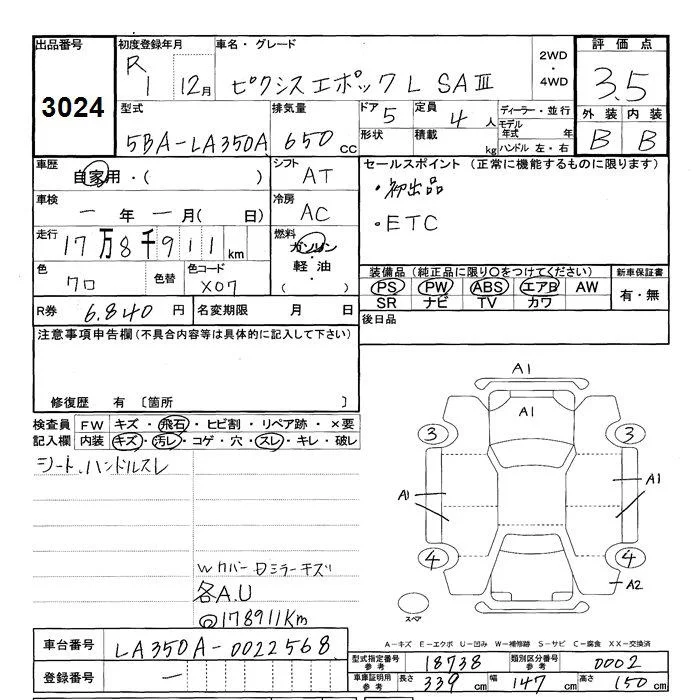 出品番号 初度登録年月 車名・グレード 2WD・4WD 評価点
3024 R1 12月 ピクシスエポック L SAⅢ 3.5
型式 排気量 ドア 5 定員 4人 ディーラー・並行 外装 内装
5BA-LA350A 650cc 形状 積載 kg モデル年式 年 ハンドル 左・右 B B
車歴 自家用・( ) シフト AT セールスポイント (正常に機能するものに限ります)
車検 一年一月( 日) 冷房 AC ・初出品
走行 17万8千911km 燃料 ガソリン 軽油 ( ) ・ETC
色 クロ 色替 色コード X07 装備品 (純正品に限り○をつけてください) 新車保証書
PS PW ABS エアB AW 有・無
SR ナビ TV カワ
R券 6,840円 名変期限 月 日 後日品
注意事項申告欄 (不具合内容等は具体的に記入して下さい)
修復歴 有 〔箇所 〕
検査員 FW キズ・飛石・ヒビ割・リペア跡・×要
記入欄 内装 キズ・汚レ・コゲ・穴・スレ・キレ・破レ
シート、ハンドルスレ
A1
A1
3 3
A1 A1
4 4
A2
スペア
Wカバー日ミラーキズ
各A.U
◎178911Km
A-キズ E-エクボ U-凹み W-補修跡 S-サビ C-腐食 XX-交換済
車台番号 LA350A-0022568 型式指定番号 参考 18738 類別区分番号 参考 0002
登録番号 一 車庫証明用 参考 長さ 339cm 幅 147cm 高さ 150cm